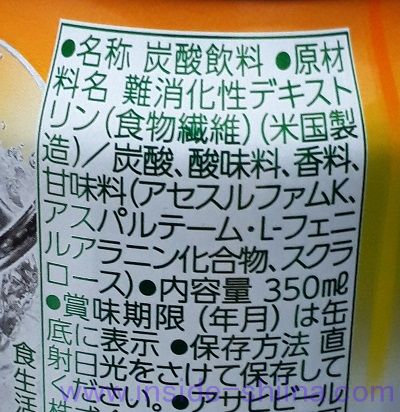 ●名称 炭酸飲料 ●原材
料名 難消化性デキスト
リン(食物繊維)(米国製
造)/炭酸、酸味料、香料、
甘味料(アセスルファムK、
アスパルテーム・L-フェニ
ルアラニン化合物、スクラ
ロース)●内容量 350ml
●賞味期限(年月)は缶
底に表示 ●保存方法 直
射日光をさけて保存して
ください。●アサヒビール
株式
食生活
www.inside-shiina.com